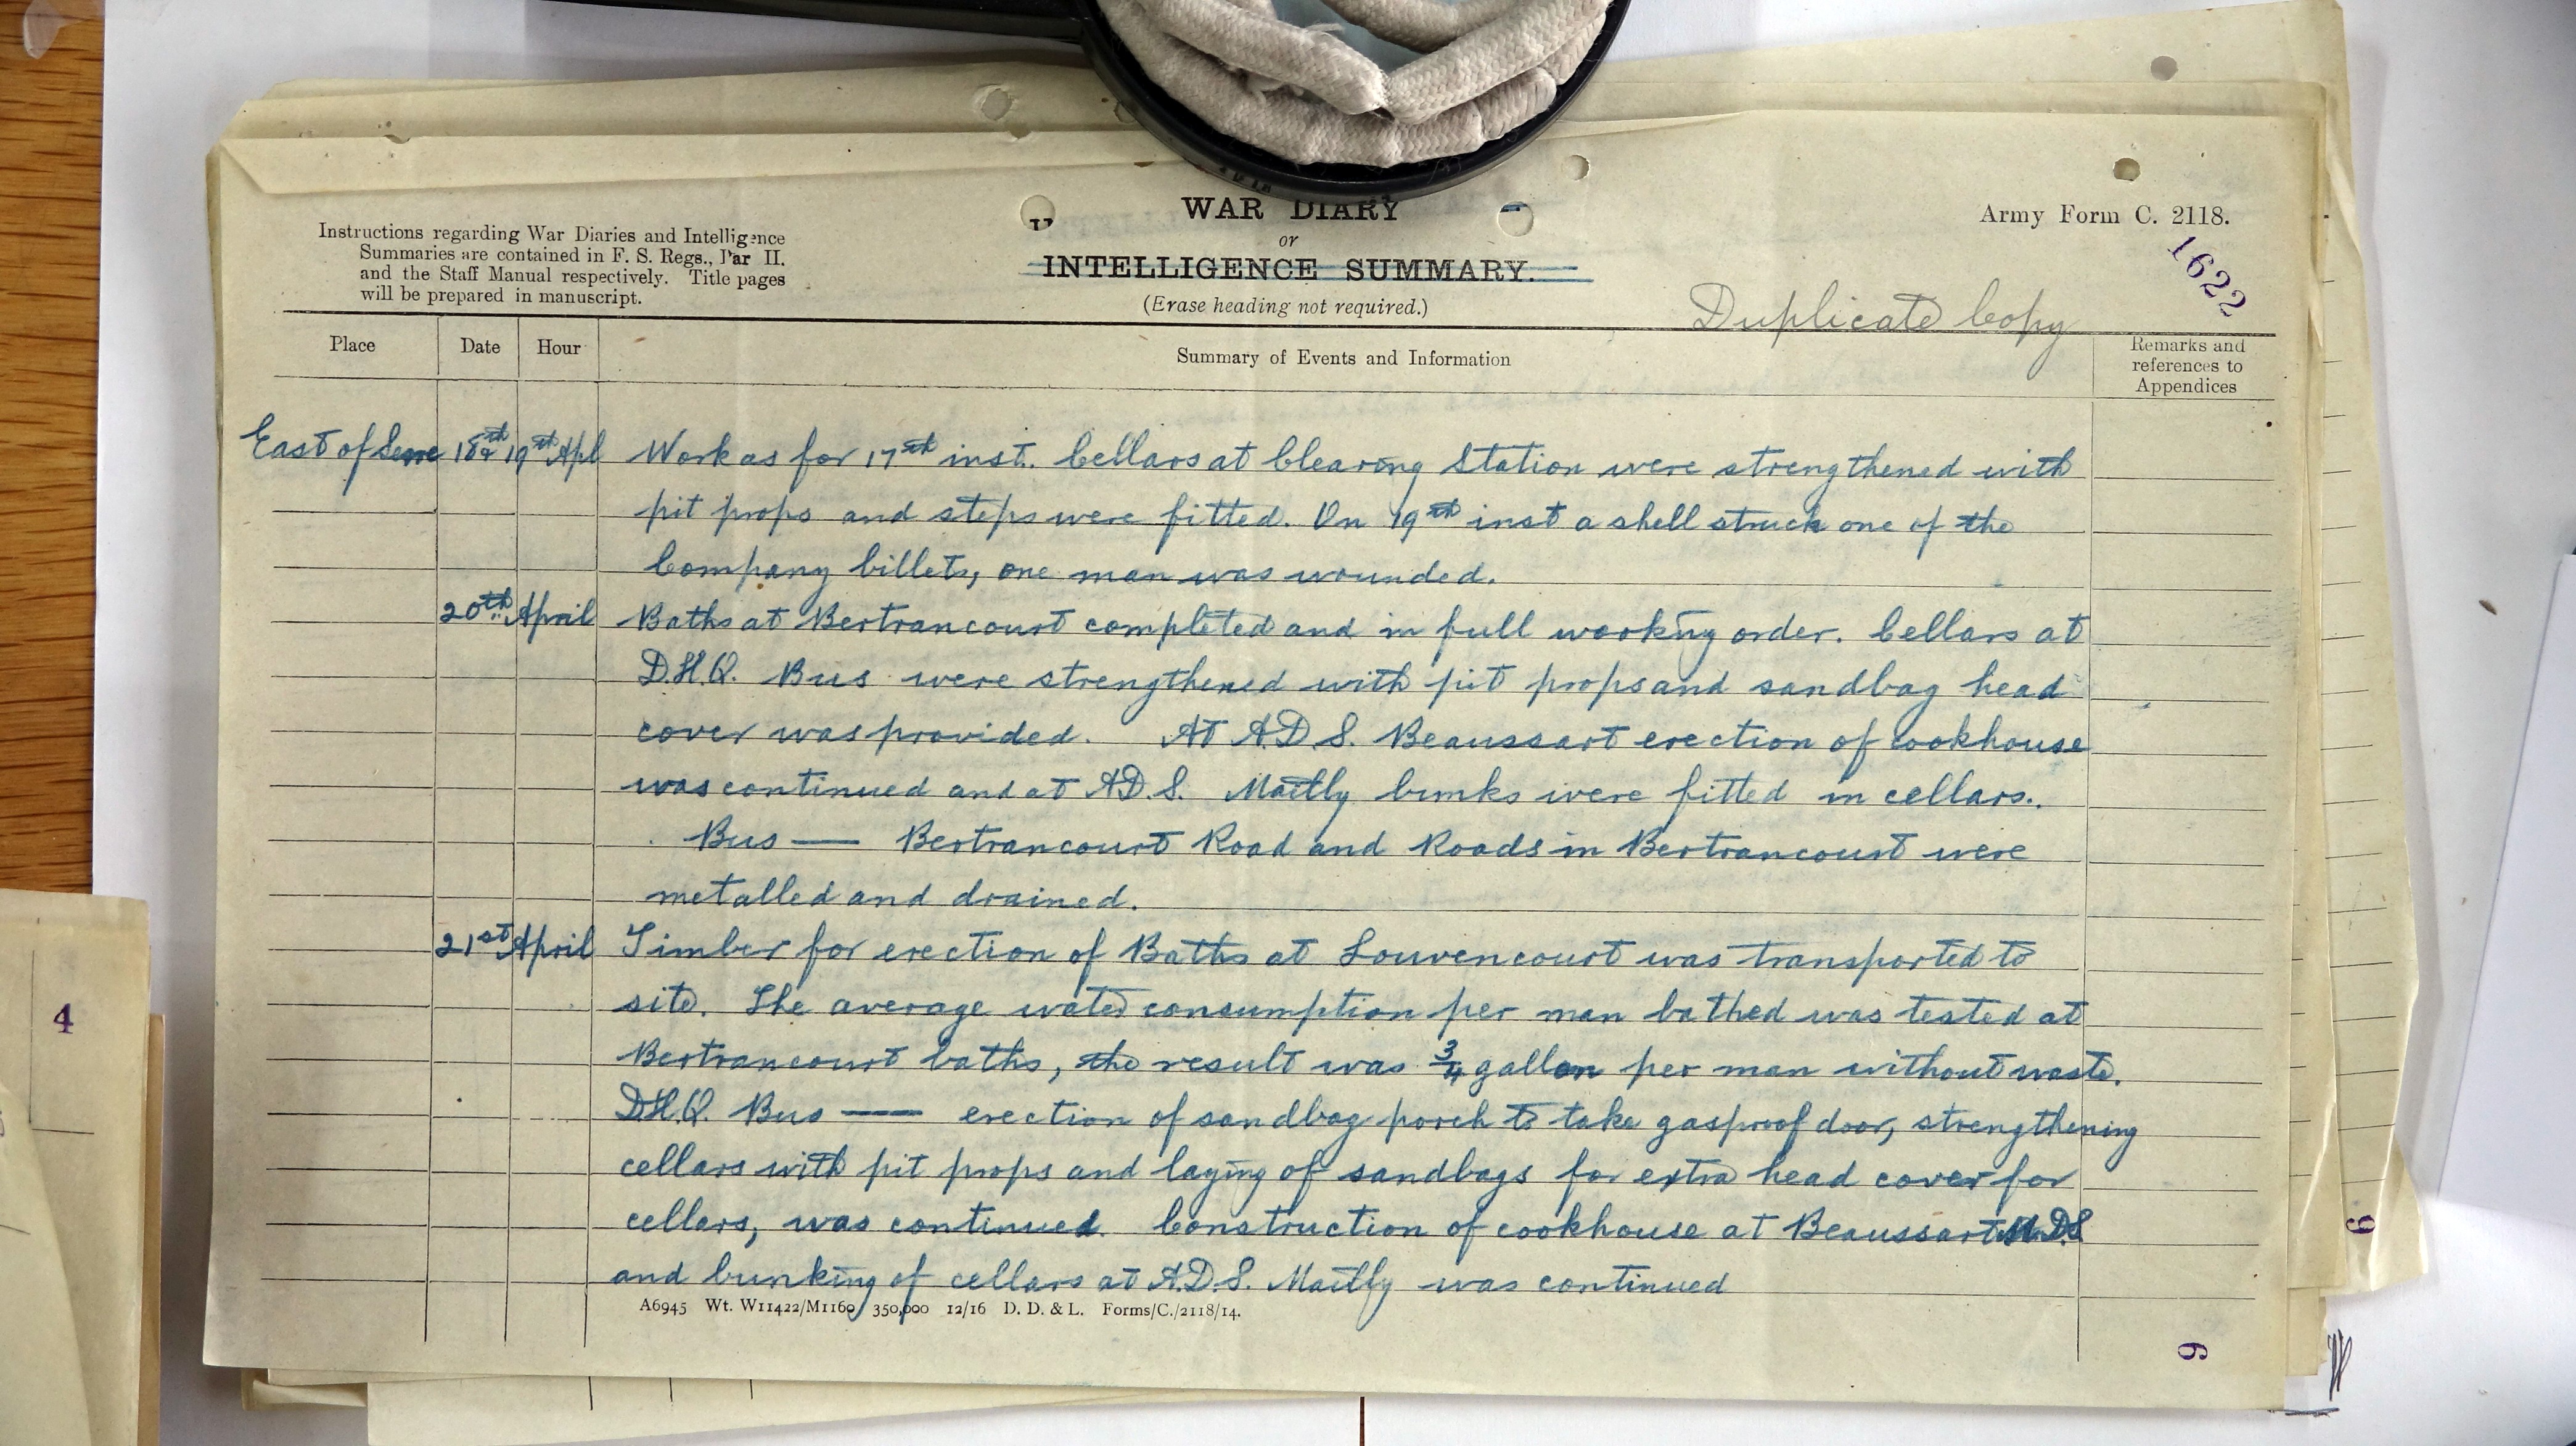 Army Form C. 2118.
WAR DIARY
or
INTELLIGENCE SUMMARY.
(Erase heading not required.)
Instructions regarding War Diaries and Intelligence
Summaries are contained in F. S. Regs., Par II.
and the Staff Manual respectively. Title pages
will be prepared in manuscript.
1622
Duplicate Copy
Place Date Hour Summary of Events and Information Remarks and references to Appendices
East of Serre 18th & 19th Apl Work as for 17th inst. Cellars at Clearing Station were strengthened with
pit props and steps were fitted. On 19th inst a shell struck one of the
Company billets, one man was wounded.
20th April Baths at Bertrancourt completed and in full working order. Cellars at
D.H.Q. Bus were strengthened with pit props and sandbag head
cover was provided. At A.D.S. Beaussart erection of Cookhouse
was continued and at A.D.S. Mailly bunks were fitted in cellars.
Bus — Bertrancourt Road and Roads in Bertrancourt were
metalled and drained.
21st April Timber for erection of Baths at Louvencourt was transported to
site. The average water consumption per man bathed was tested at
Bertrancourt baths, the result was 3/4 gallon per man without waste.
D.H.Q. Bus — erection of sandbag porch to take gasproof door, strengthening
cellars with pit props and laying of sandbags for extra head cover for
cellars, was continued. Construction of cookhouse at Beaussart A.D.S
and bunking of cellars at A.D.S. Mailly was continued
A6945 Wt. W11422/M1160 350,000 12/16 D. D. & L. Forms/C./2118/14.
4
9
9